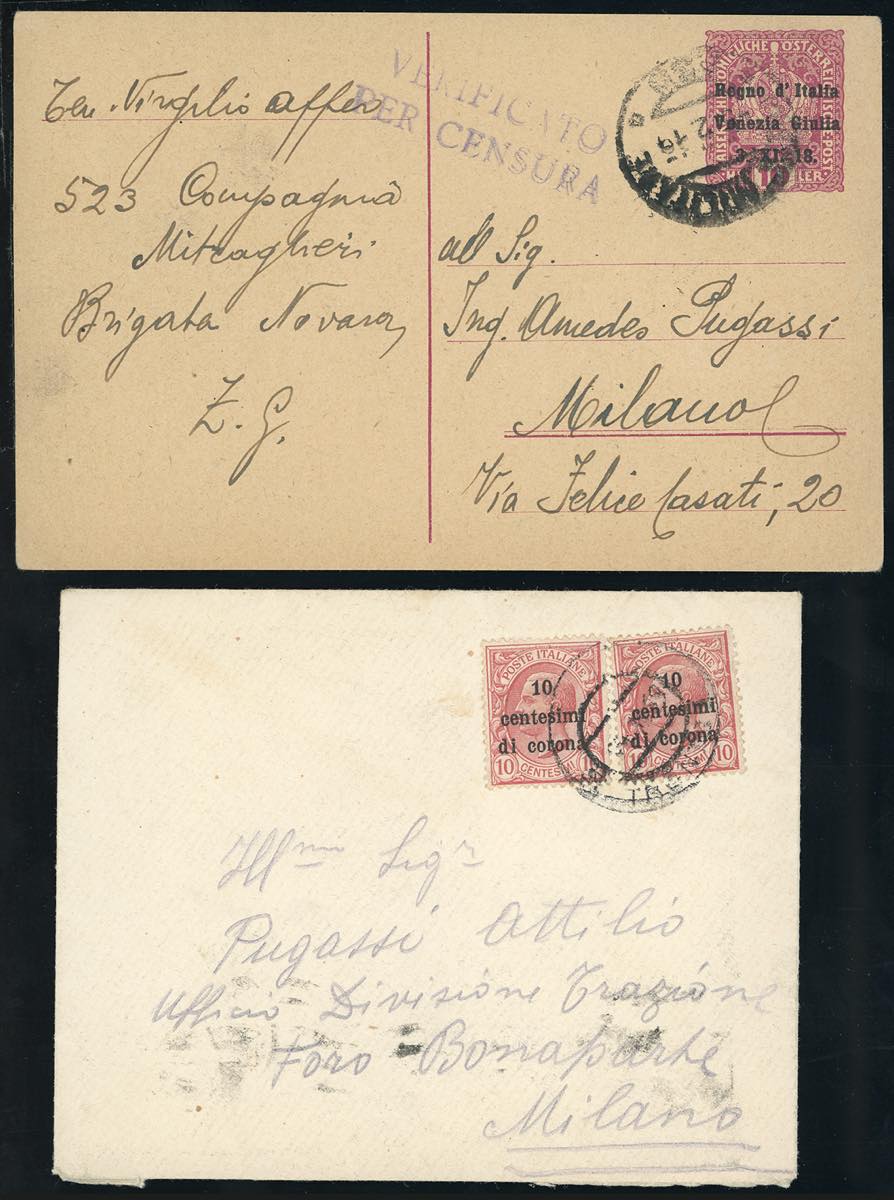 Ten. Virgilio Alfieri
523 Compagnia
Mitraglieri
Brigata Novara
Z. G.
VERIFICATO
PER CENSURA
KAISERLICHE KÖNIGLICHE ÖSTERREICHISCHE POST
Regno d'Italia
Venezia Giulia
3. XI. 18.
HELLER
MILITARE
all Sig.
Ing. Amedeo Pugassi
Milano
Via Felice Casati, 20
POSTE ITALIANE
10
centesimi
di corona
10 CENTESIMI 10
POSTE ITALIANE
10
centesimi
di corona
10 CENTESIMI 10
Ill mo Sig r
Pugassi Attilio
Ufficio Divisione Trazione
Foro Bonaparte
Milano